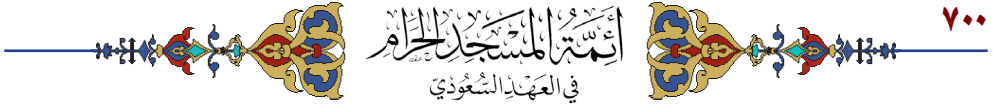 ٧٠٠
أَئِمَّةُ المَسْجِدِ الحَرَامِ
فِي العَهْدِ السُّعُودِيّ